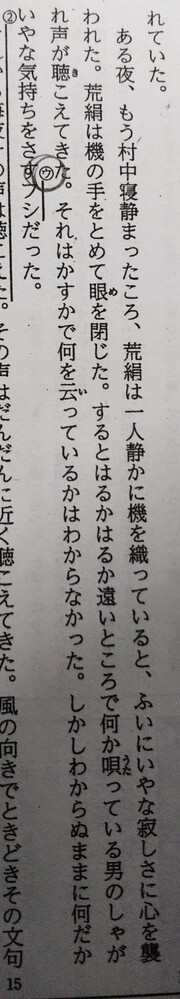 れていた。
ある夜、もう村中寝静まったころ、荒絹は一人静かに機を織っていると、ふいにいやな寂しさに心を襲
われた。荒絹は機の手をとめて眼を閉じた。するとはるかはるか遠いところで何か唄っている男のしゃが
め
うた
れ声が聴こえてきた。それはかすかで何を云っているかはわからなかった。しかしわからぬままに何だか
き
い
いやな気持ちをさすフシだった。
ウ
②
声は聴こえた。その声はだんだんに近く聴こえてきた。風の向きでときどきその文句
15